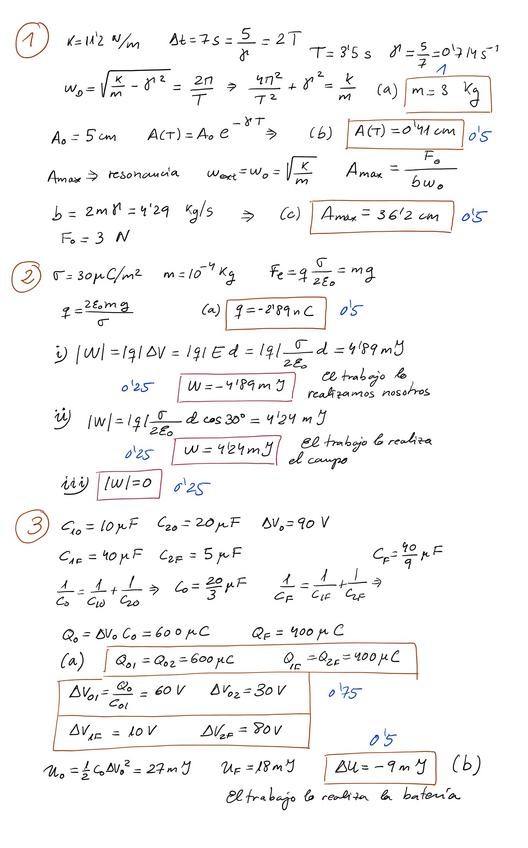 1 K=11'2 N/m Δt=7s=5/γ=2T T=3'5 s γ=5/7=0'714 s⁻¹
ω_D=√(K/m-γ²)=2π/T ⇒ 4π²/T²+γ²=K/m (a) m=3 Kg 1
A₀=5cm A(T)=A₀e^(-γT) ⇒ (b) A(T)=0'41cm 0'5
Amax ⇒ resonancia ω_ext=ω₀=√(K/m) Amax=F₀/(bω₀)
b=2mγ=4'29 Kg/s ⇒ (c) Amax=36'2 cm 0'5
F₀=3 N
2 σ=30μC/m² m=10⁻⁴Kg Fe=q σ/2ε₀=mg
q=2ε₀mg/σ (a) q=-2'89nC 0'5
i) |W|=|q|ΔV=|q|E d=|q|σ/2ε₀ d=4'89mJ
0'25 W=-4'89mJ El trabajo lo
realizamos nosotros
ii) |W|=|q|σ/2ε₀ d cos30°=4'24 mJ
0'25 W=4'24mJ El trabajo lo realiza
el campo
iii) |W|=0 0'25
3 C₁₀=10μF C₂₀=20μF ΔV₀=90V
C₁F=40μF C₂F=5μF C_F=40/9 μF
1/C₀=1/C₁₀+1/C₂₀ ⇒ C₀=20/3 μF 1/C_F=1/C₁F+1/C₂F ⇒
Q₀=ΔV₀C₀=600μC Q_F=400μC
(a) Q₀₁=Q₀₂=600μC Q₁F=Q₂F=400μC
ΔV₀₁=Q₀/C₀₁=60V ΔV₀₂=30V 0'75
ΔV₁F=10V ΔV₂F=80V
0'5
U₀=½C₀ΔV₀²=27mJ U_F=18mJ ΔU=-9mJ (b)
El trabajo lo realiza la batería